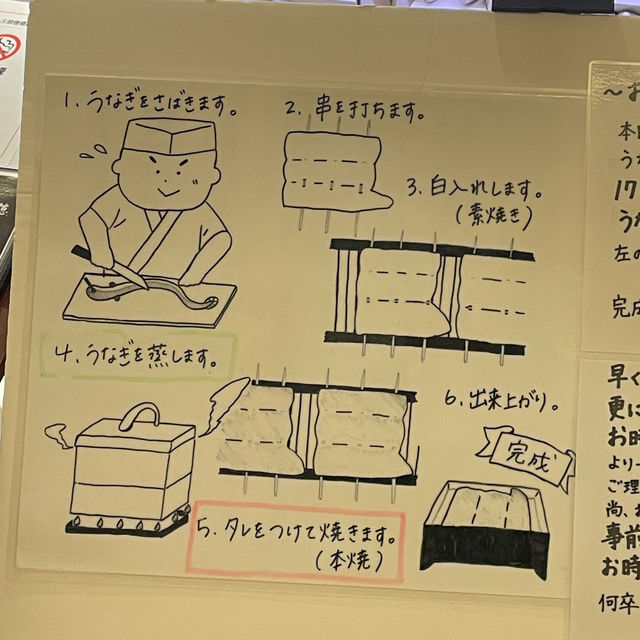 1、うなぎをさばきます。
2、串を打ちます。
3、白入れします。
(素焼き)
4、うなぎを蒸します。
5、タレをつけて焼きます。
(本焼)
6、出来上がり。
完成
〜お
本日
う
17
う
左の
完成
早く
更に
お時
より一
ご理
尚、お
事前
お時
何卒